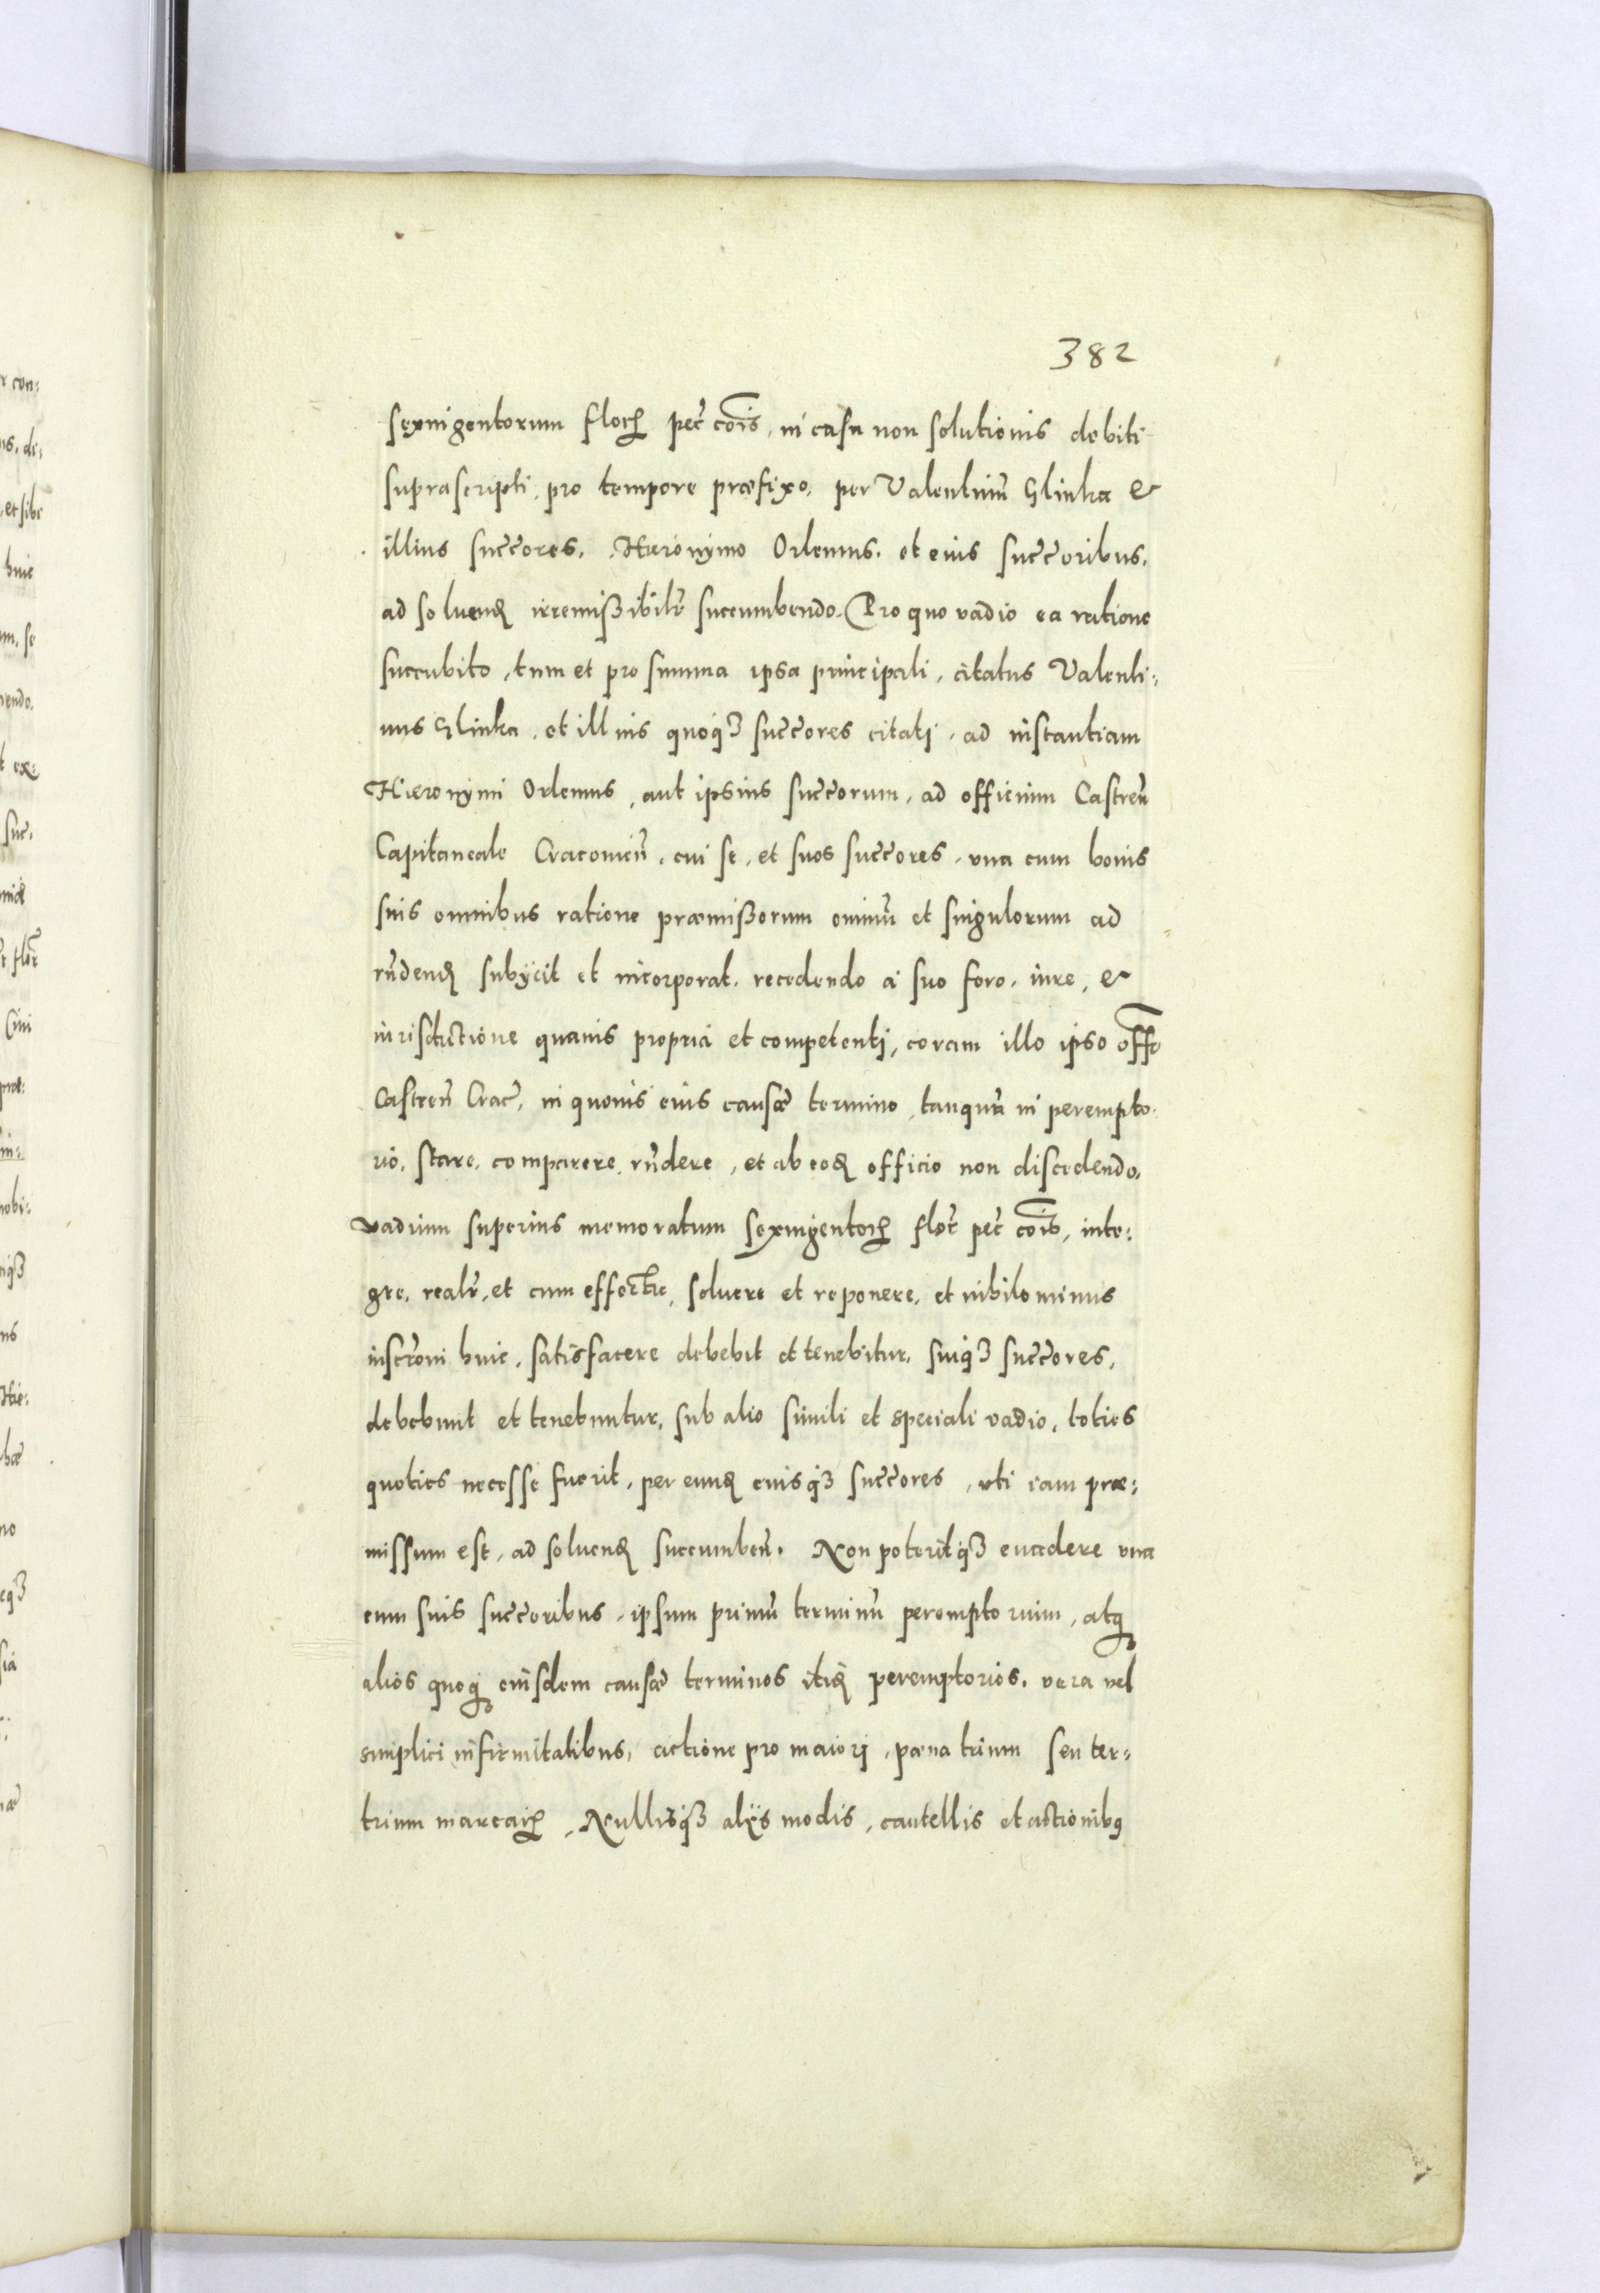 382
sexingentorum floꝝ pec̃ cõis, in casu non solutionis debiti
suprascripti, pro tempore præfixo, per Valentinũ Glinka &
illius succ̃ores, Hieronymo Orlemus, et eius succ̃oribus,
ad soluenꝺ irremißibilr̃ succumbendo. Pro quo vadio ea ratione
succubito, tum et pro summa ipsa principali, citatus Valenti:
nus Glinka, et illius quoqꝫ succ̃ores citati, ad instantiam
Hieronymi Orlemus, aut ipsius succ̃orum, ad officium Castreñ
Capitaneale Cracouieñ, cui se, et suos succ̃ores, vna cum bonis
suis omnibus ratione præmißorum omniũ et singulorum ad
rñdenꝺ subÿcit et incorporat, recedendo à suo foro, iure, &
iurisdictione quauis propria et competenti, coram illo ipso offõ
Castreñ Crac̃, in quouis eius causæ termino, tanquã in perempto:
rio, stare, comparere, rñdere, et ab eoꝺ officio non discedendo,
vadium superius memoratum sexingentoꝝ flor̃ pec̃ cõis, inte:
gre, realr̃, et cum effectu, soluere et reponere, et nihilominus
inscr̃oni huic, satisfacere debebit et tenebitur, suiqꝫ succ̃ores,
debebunt et tenebuntur, sub alio simili et speciali vadio, toties
quoties necesse fuerit, per eunꝺ eiusqꝫ succ̃ores, vti iam præ:
missum est, ad soluenꝺ succumbeñ. Non poteritqꝫ euadere vna
cum suis succ̃oribus, ipsum primũ terminũ peremptorium, atqꝫ
alios quoqꝫ eiusdem causæ terminos itiꝺ peremptorios, vera vel
simplici infirmitatibus, actione pro maiori, pœna trium seu ter:
trium marcaꝝ, Nullisqꝫ alÿs modis, cautellis et actionibꝯ